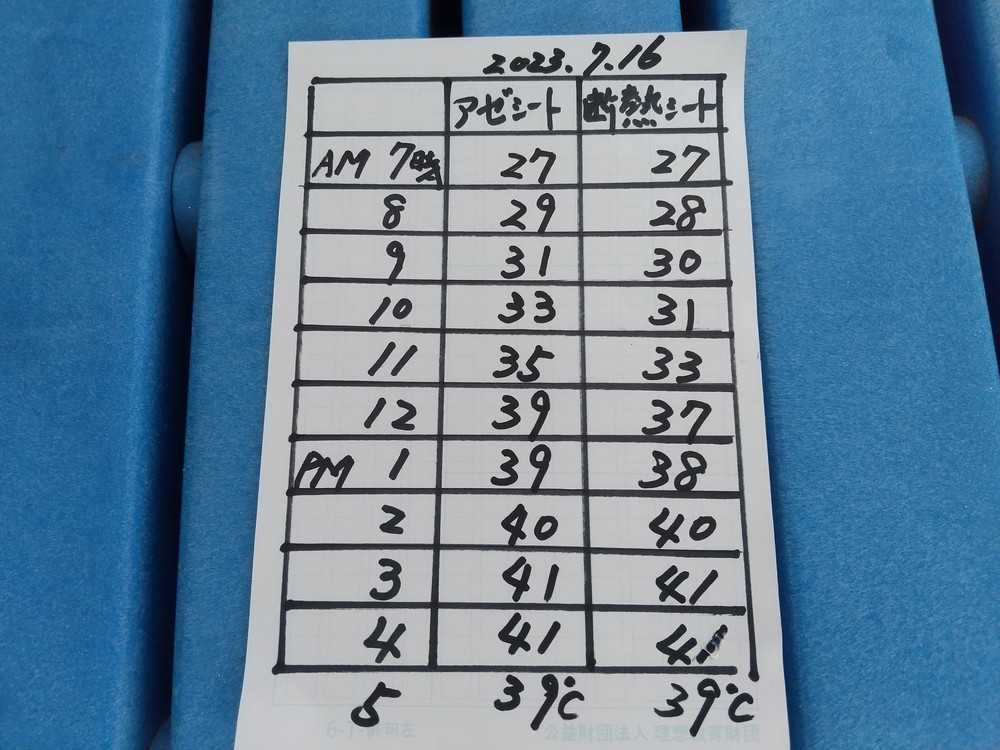 2023.7.16
アゼシート 断熱シート
AM 7時 27 27
8 29 28
9 31 30
10 33 31
11 35 33
12 39 37
PM 1 39 38
2 40 40
3 41 41
4 41 41
5 39℃ 39℃
公益財団法人 理想教育財団